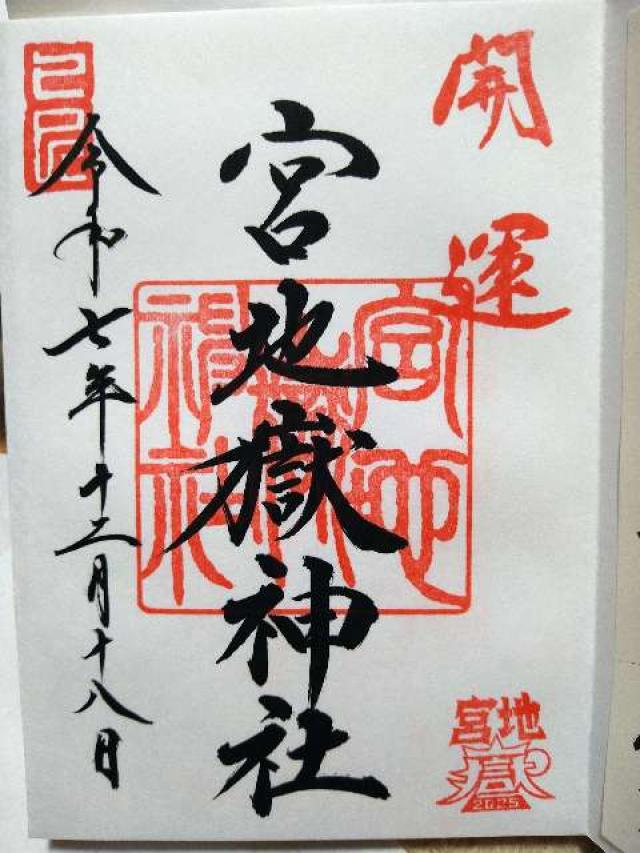 開運
宮地嶽神社
宮地嶽神社
令和七年十二月十八日
己巳
宮地
嶽
2025